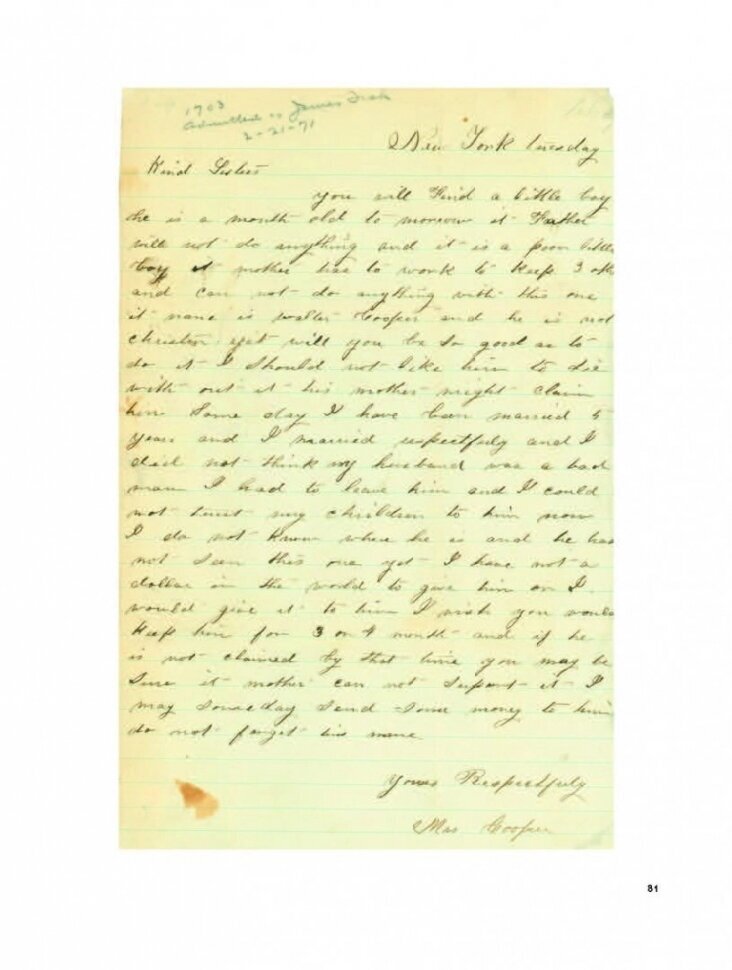 1703
Admitted as James Fisk
2-21-71
New York tuesday
Kind Sisters
you will Find a little boy
he is a month old to morrow it Father
will not do anything and it is a poor little
boy it mother has to work to keep 3 oth
and can not do anything with this one
it name is walter Cooper and he is not
christen yet will you be So good as to
do it I Should not like him to die
with out it his mother might claim
him Some day I have been married 5
years and I married respectfuly and I
did not think my husband was a bad
man I had to leave him and I could
not trust my children to him now
I do not know where he is and he has
not Seen this one yet I have not a
dollar in the world to give him or I
would give it to him I wish you would
keep him for 3 or 4 month and if he
is not claimed by that time you may be
Sure it mother can not Suport it I
may Someday Send Some money to him
do not forget his name
Yours Respectfuly
Mrs Cooper
81